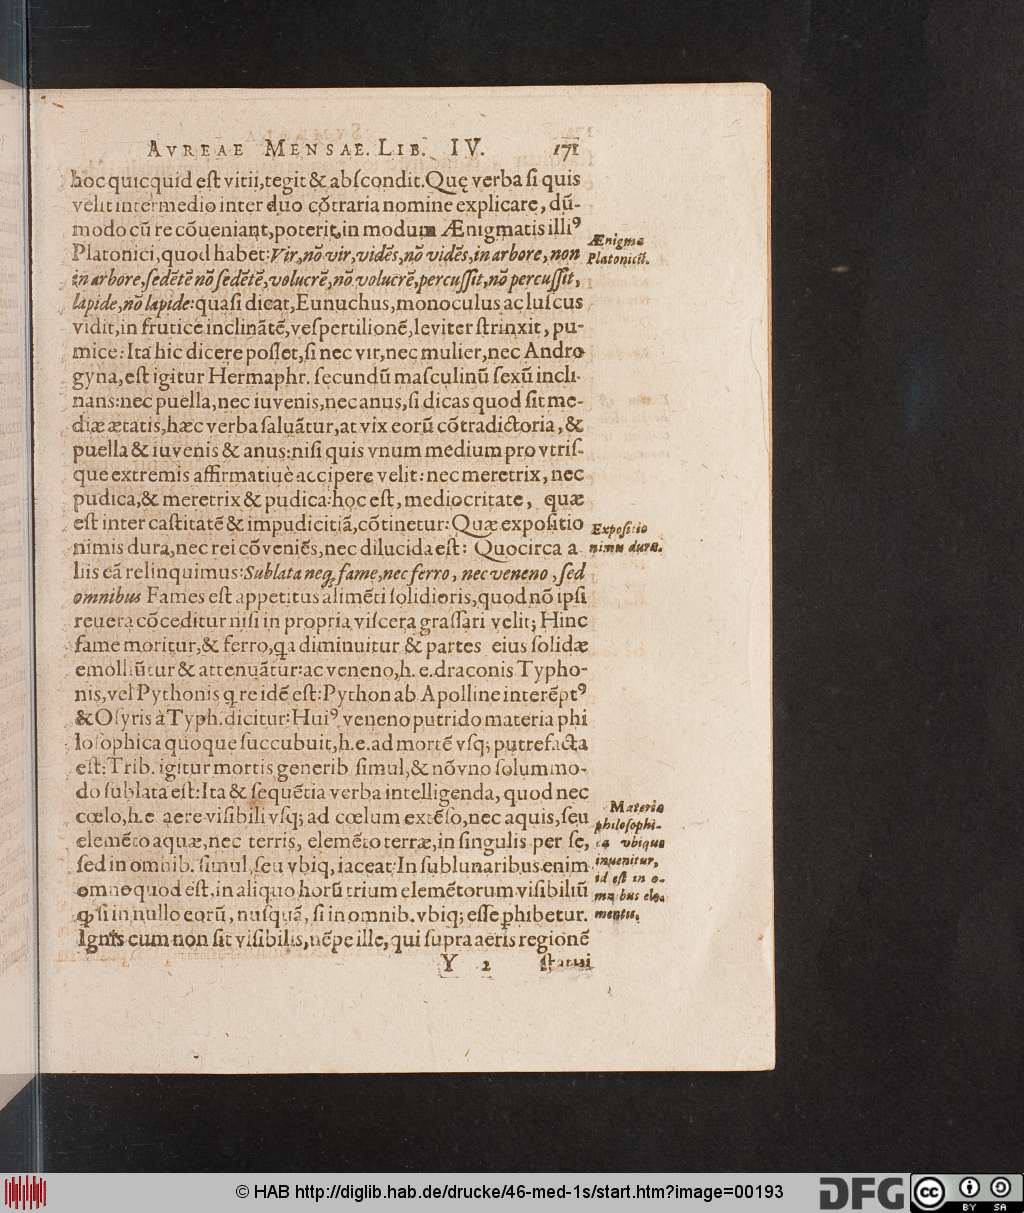 AVREAE MENSAE. LIB. IV. 171
hoc quicquid eſt vitii, tegit & abſcondit. Quę verba ſi quis
velit intermedio inter duo cōtraria nomine explicare, dū-
modo cū re cōueniant, poterit, in modum Ænigmatis illiꝰ
Platonici, quod habet: Vir, nō vir, vidēs, nō vidēs, in arbore, non
in arbore, ſedētē nō ſedētē, volucrē, nō volucrē, percuſſit, nō percuſſit,
lapide, nō lapide: quaſi dicat, Eunuchus, monoculus ac luſcus
vidit, in frutice inclinātē, veſpertilionē, leviter ſtrinxit, pu-
mice: Ita hic dicere poſſet, ſi nec vir, nec mulier, nec Andro
gyna, eſt igitur Hermaphr. ſecundū maſculinū ſexū incli-
nans: nec puella, nec iuvenis, nec anus, ſi dicas quod ſit me-
diæ ætatis, hæc verba ſaluātur, at vix eorū cōtradictoria, &
puella & iuvenis & anus: niſi quis vnum medium pro vtriſ-
que extremis affirmatiuè accipere velit: nec meretrix, nec
pudica, & meretrix & pudica: hoc eſt, mediocritate, quæ
eſt inter caſtitatē & impudicitiā, cōtinetur: Quæ expoſitio
nimis dura, nec rei cōveniēs, nec dilucida eſt: Quocirca a
liis eā relinquimus: Sublata neq; fame, nec ferro, nec veneno, ſed
omnibus Fames eſt appetitus alimēti ſolidioris, quod nō ipſi
revera cōceditur niſi in propria viſcera graſſari velit; Hinc
fame moritur, & ferro, qa diminuitur & partes eius ſolidæ
emolliūtur & attenuātur: ac veneno, h. e. draconis Typho-
nis, vel Pythonis q re idē eſt: Python ab Apolline interēptꝰ
& Oſyris à Typh. dicitur: Huiꝰ veneno putrido materia phi
loſophica quoque ſuccubuit, h. e. ad mortē vſq; putrefacta
eſt: Trib. igitur mortis generib. ſimul, & nō vno ſolummo-
do ſublata eſt: Ita & ſequētia verba intelligenda, quod nec
cœlo, h. e aere viſibili vſq; ad cœlum extēſo, nec aquis, ſeu
elemēto aquæ, nec terris, elemēto terræ, in ſingulis per ſe,
ſed in omnib. ſimul, ſeu vbiq, iaceat: In ſublunaribus enim
omne quod eſt, in aliquo horū trium elemētorum viſibiliū
ꝙ ſi in nullo eorū, nuſquā, ſi in omnib. vbiq; eſſe phibetur.
Ignis cum non ſit viſibilis, nēpe ille, qui ſupra aeris regionē
Y 2 ſtatui
Ænigma
Platonicū.
Expoſitio
nimis dura.
Materia
philoſophi-
ca vbique
inuenitur,
id eſt in o-
mnibus ele-
mentis.
© HAB http://diglib.hab.de/drucke/46-med-1s/start.htm?image=00193
DFG
cc BY SA